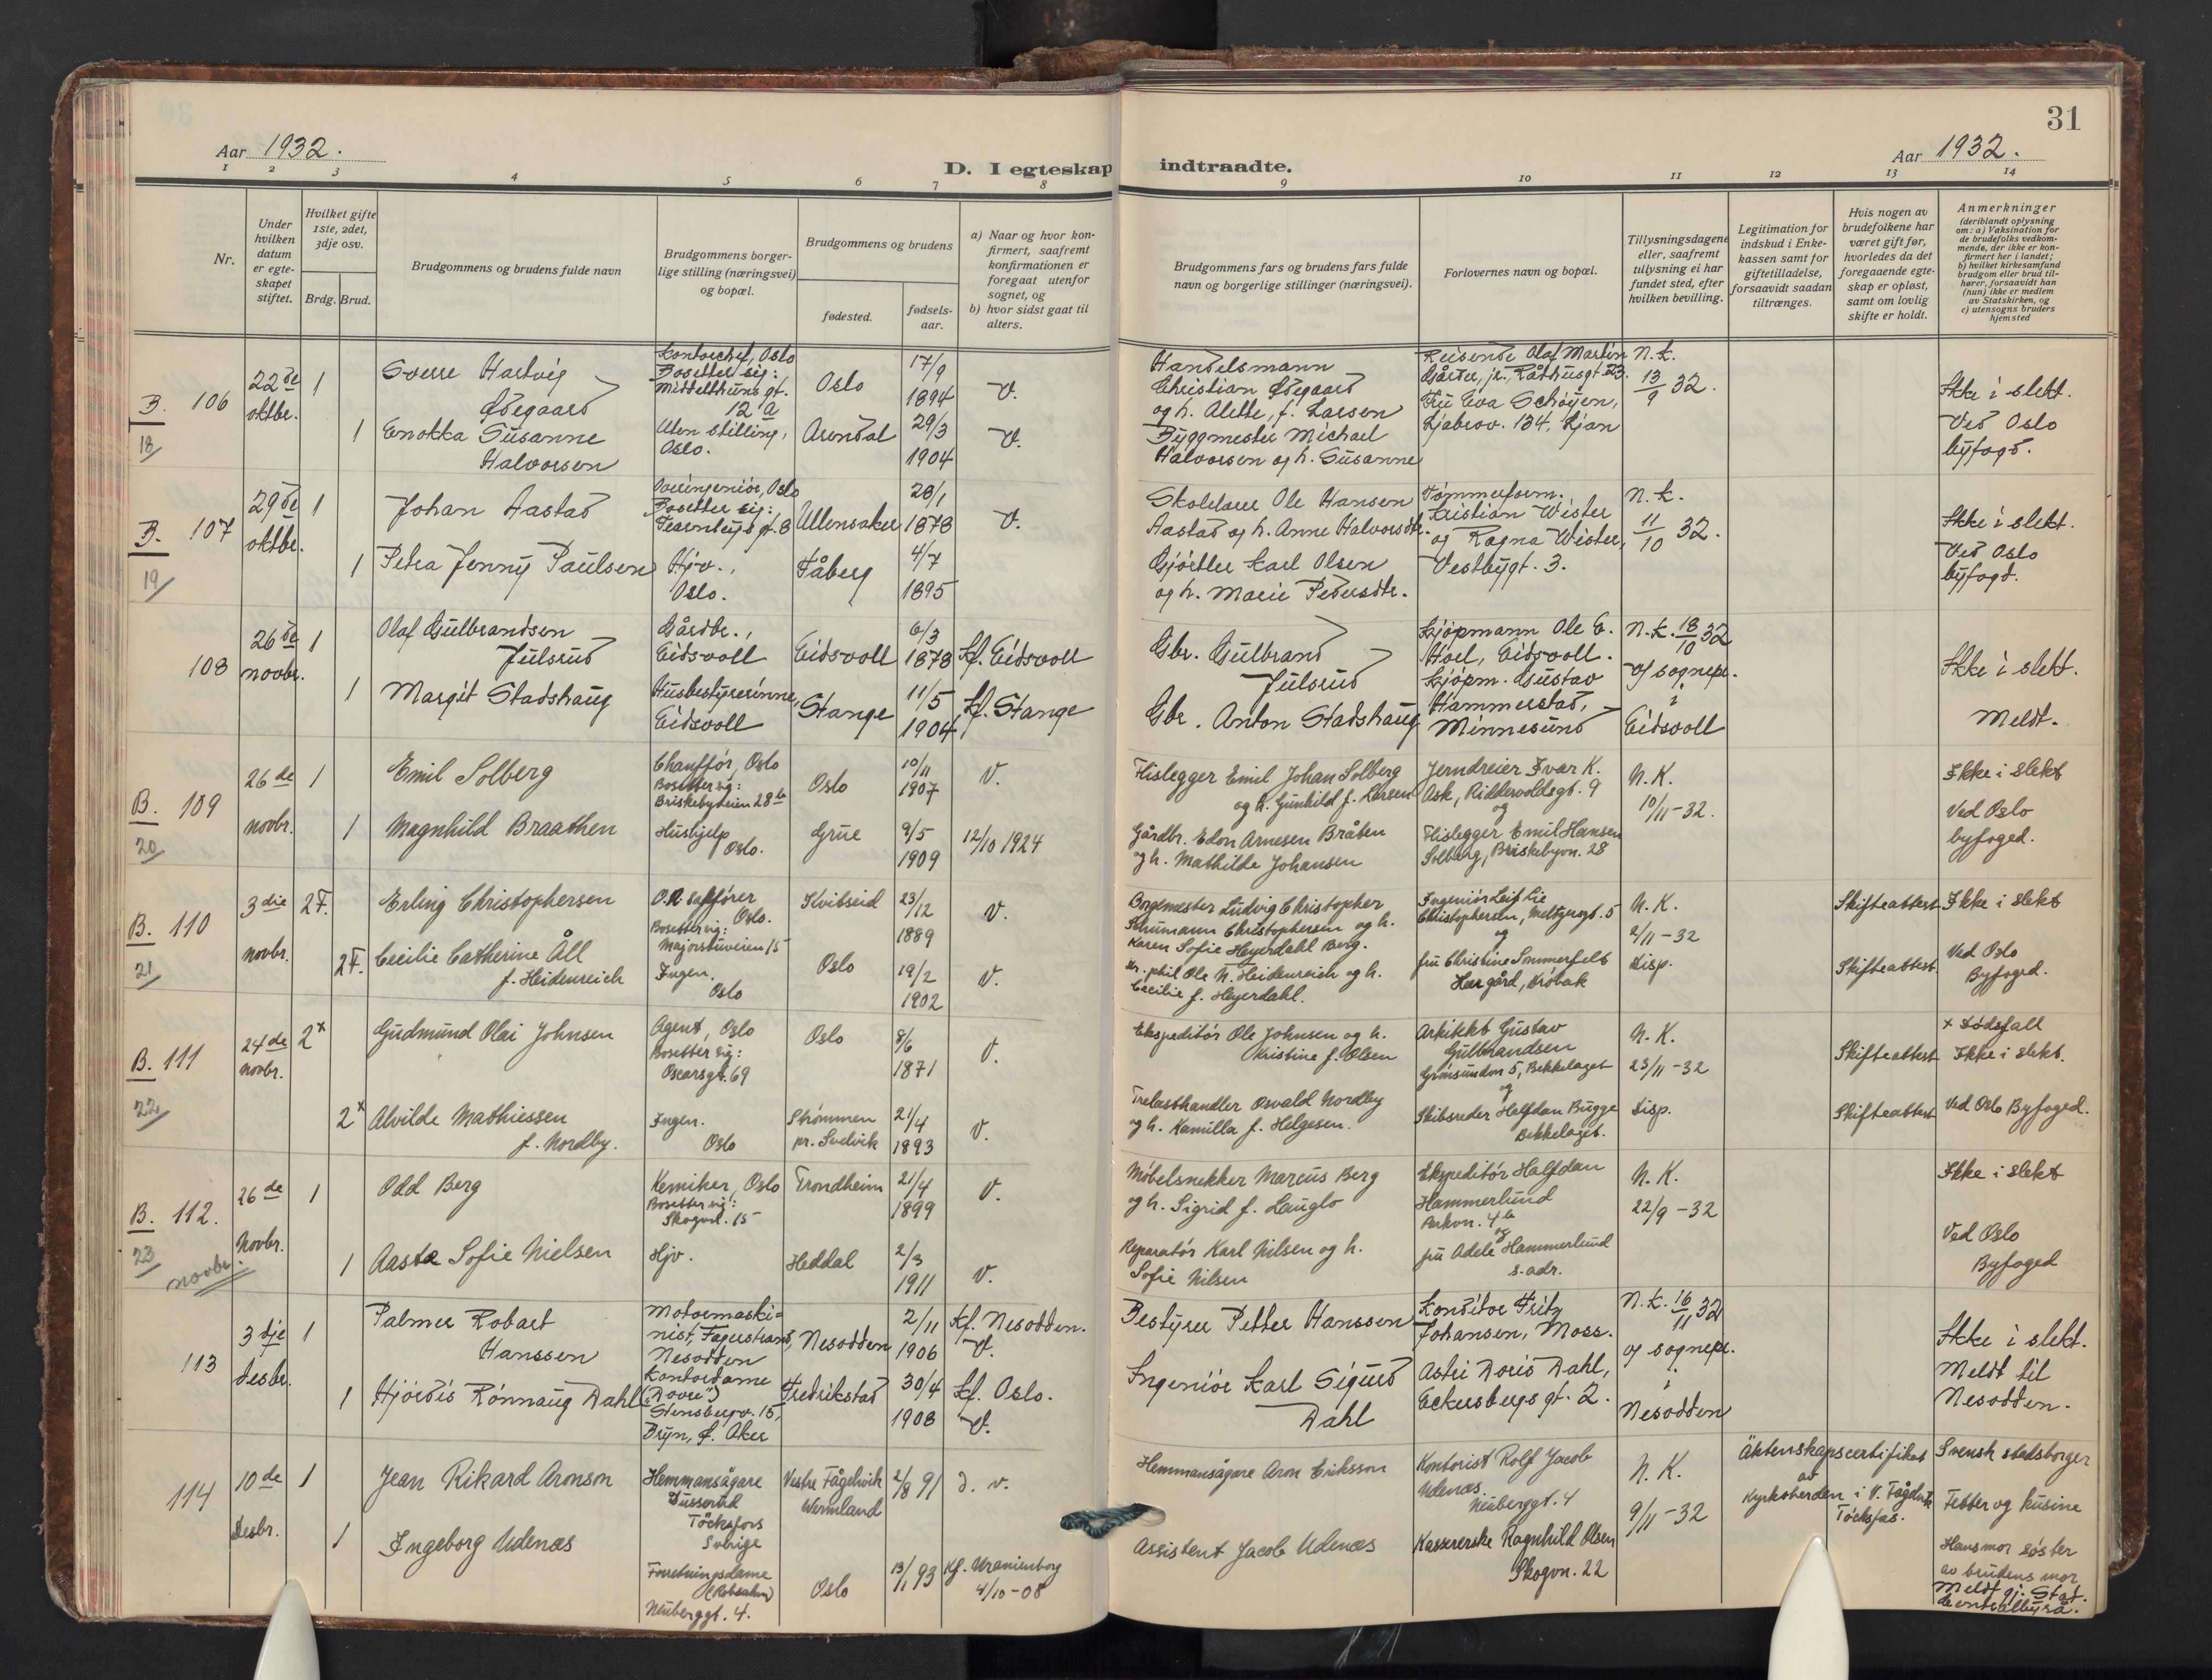 31
Aar 1932.
D. I egteskap indtraadte.
Aar 1932.
1 2 3 4 5 6 7 8 9 10 11 12 13 14
Nr.
Under hvilken datum er egteskapet stiftet.
Hvilket gifte 1ste, 2det, 3dje osv.
Brdg. Brud.
Brudgommens og brudens fulde navn
Brudgommens borgerlige stilling (næringsvei) og bopæl.
Brudgommens og brudens
fødested.
fødselsaar.
a) Naar og hvor konfirmert, saafremt konfirmationen er foregaat utenfor sognet, og
b) hvor sidst gaat til alters.
Brudgommens fars og brudens fars fulde navn og borgerlige stillinger (næringsvei).
Forlovernes navn og bopæl.
Tillysningsdagene eller, saafremt tillysning ei har fundet sted, efter hvilken bevilling.
Legitimation for indskud i Enkekassen samt for giftetilladelse, forsaavidt saadan tiltrænges.
Hvis nogen av brudefolkene har været gift før, hvorledes da det foregaaende egteskap er opløst, samt om lovlig skifte er holdt.
Anmerkninger
(deriblandt oplysning om: a) Vaksination for de brudefolks vedkommende, der ikke er konfirmert her i landet;
b) hvilket kirkesamfund brudgom eller brud tilhører, forsaavidt han (hun) ikke er medlem av Statskirken, og
c) utensogns bruders hjemsted
B. 18/
106
22de oktbr.
1
Sverre Hartvig Ødegaard
Kontorchef, Oslo
Bosetter sig:
Middelthuns gt. 12 a
Oslo
17/9 1894
V.
Handelsmann Christian Ødegaard og h. Alette, f. Larsen
Reisende Olaf Martin Gårder, jr., Rådhusgt. 23.
Fru Eva Schøyen, Ljabrov. 134, Ljan
N.K. 13/9 32.
Ikke i slekt.
Ved Oslo byfogd.
1
Enokka Susanne Halvorsen
Uten stilling, Oslo.
Arendal
29/3 1904
V.
Byggmester Michael Halvorsen og h. Susanne
B. 19/
107
29de oktbr.
1
Johan Aastad
Overingeniør, Oslo
Bosetter sig:
Tearnleys gt. 8
Ullensaker
28/1 1878
V.
Skolelærer Ole Hansen Aastad og h. Anne Halvorsdtr.
Tømmerform. Kristian Wister og Ragna Wister, Vestbygt. 3.
N.K. 11/10 32.
Ikke i slekt.
Ved Oslo byfogd.
1
Petra Jenny Paulsen
Hjv., Oslo.
Fåberg
4/7 1895
Gjørtler Karl Olsen og h. Marie Pedersdtr.
108
26de novbr.
1
Olaf Gulbrandsen Julsrud
Gårdbr., Eidsvoll
Eidsvoll
6/3 1878
Kf. Eidsvoll
Gbr. Gulbrand Julsrud
Kjøpmann Ole E. Hoel, Eidsvoll.
Kjøpm. Gustav Hammerstad, Minnesund
N.K. 18/10 32
og sognepr. i Eidsvoll
Ikke i slekt.
Meldt.
1
Margit Stadshaug
Husbestyrerinne, Eidsvoll
Stange
11/5 1904
Kf. Stange
Gbr. Anton Stadshaug
B. 20/
109
26de novbr.
1
Emil Solberg
Chauffør, Oslo
Bosetter sig:
Briskebyveien 28 b
Oslo
10/11 1907
V.
Flislegger Emil Johan Solberg og h. Gunhild f. Larsen
Jerndreier Ivar K. Ask, Riddervoldsgt. 9
og
Flislegger Emil Hansen Solberg, Briskebyvn. 28
N.K. 10/11-32.
Ikke i slekt
Ved Oslo byfoged.
1
Magnhild Braathen
Hushjelp Oslo.
Grue
9/5 1909
12/10 1924
Gårdbr. Edon Arnesen Bråten og h. Mathilde Johansen
B. 21/
110
3die novbr.
2 F.
Erling Christophersen
O.R. Sakfører Oslo.
Bosetter sig:
Majorstuveien 15
Kvitseid
23/12 1889
V.
Borgemester Ludvig Christopher Schumann Christophersen og h. Karen Sofie Heyerdahl Berg.
Ingeniør Leif Lie Christophersen, Meltzersgt. 5
og
fru Christine Sommerfelt Hergård, Drøbak
N.K. 2/11-32
Disp.
Skifteattest
Ikke i slekt
Ved Oslo Byfoged.
2 F.
Cecilie Catherine Åll f. Heidenreich
Ingen. Oslo
Oslo
19/2 1902
V.
Dr. phil Ole N. Heidenreich og h. Cecilie f. Heyerdahl.
Skifteattest.
B. 22/
111
24de novbr.
2x
Gudmund Olai Johnsen
Agent, Oslo
Bosetter sig:
Oscarsgt. 69
Oslo
8/6 1871
V.
Ekspeditør Ole Johnsen og h. Kristine f. Olsen
Arkitekt Gustav Gulbrandsen
Grønsundvn 5, Bekkelaget
og
Skibsreder Halfdan Bugge Bekkelaget.
N.K. 23/11-32
Disp.
Skifteattest
x Dødsfall
Ikke i slekt.
Ved Oslo Byfoged.
2x
Alvilde Mathiessen f. Nordby.
Ingen. Oslo
Strømmen pr. Svelvik
21/4 1893
V.
Trelasthandler Osvald Nordby og h. Kamilla f. Helgesen.
Skifteattest
B. 23/
112.
novbr.
26de Novbr.
1
Odd Berg
Kemiker, Oslo
Bosetter sig:
Skogvn. 15
Trondheim
21/4 1899
V.
Møbelsnekker Marcus Berg og h. Sigrid f. Lauglo
Ekspeditør Halfdan Hammerlund
Parkvn. 4 b
og
fru Adele Hammerlund s. adr.
N.K. 22/9-32
Ikke i slekt
Ved Oslo Byfoged
1
Aasta Sofie Nielsen
Hjv.
Heddal
2/3 1911
V.
Reparatør Karl Nilsen og h. Sofie Nilsen
113
3dje desbr.
1
Palmer Robart Hanssen
Motormaskinist, Fagerstrand, Nesodden
Nesodden
2/11 1906
Kf. Nesodden. V.
Bestyrer Petter Hanssen
Konditor Fritz Johansen, Moss.
Astri Doris Dahl, Eckersbergs gt. 2.
N.K. 16/11 32
og sognepr. i Nesodden
Ikke i slekt.
Meldt til Nesodden.
1
Hjørdis Rønnaug Dahl
Kontordame ("Dovre")
Stensbergv. 15, Bryn, Ø. Aker
Fredrikstad
30/4 1908
Kf. Oslo. V.
Ingeniør Karl Sigurd Dahl
114
10de Desbr.
1
Jean Rikard Aronson
Hemmansägare
Töcksfors
Sverige
Vestre Fågelvik Wermland
2/8 91
d. v.
Hemmansägare Aron Eriksson
Kontorist Rolf Jacob Udenæs. Neuberggt. 4
Kassererske Ragnhild Olsen Skogvn. 22
N.K. 9/11-32
Äktenskapscertifikat av Kyrkoherden i V. Fågelvik Töcksfors.
Svensk statsborger
Fetter og kusine
Hans mor søster av brudens mor
Meldt gj. Stat. Centralbyrå.
1
Ingeborg Udenæs
Forretningsdame
(Robsahm)
Neuberggt. 4.
Oslo
13/1 93
Kf. Uranienborg 4/10-08
Assistent Jacob Udenæs